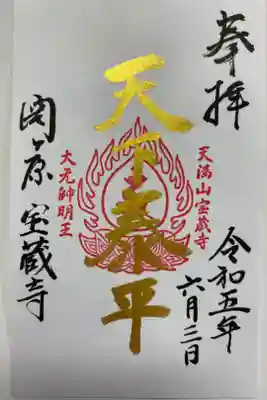 奉拝
令和五年
六月三日
天満山宝蔵寺
天下泰平
大元帥明王
関ヶ原宝蔵寺